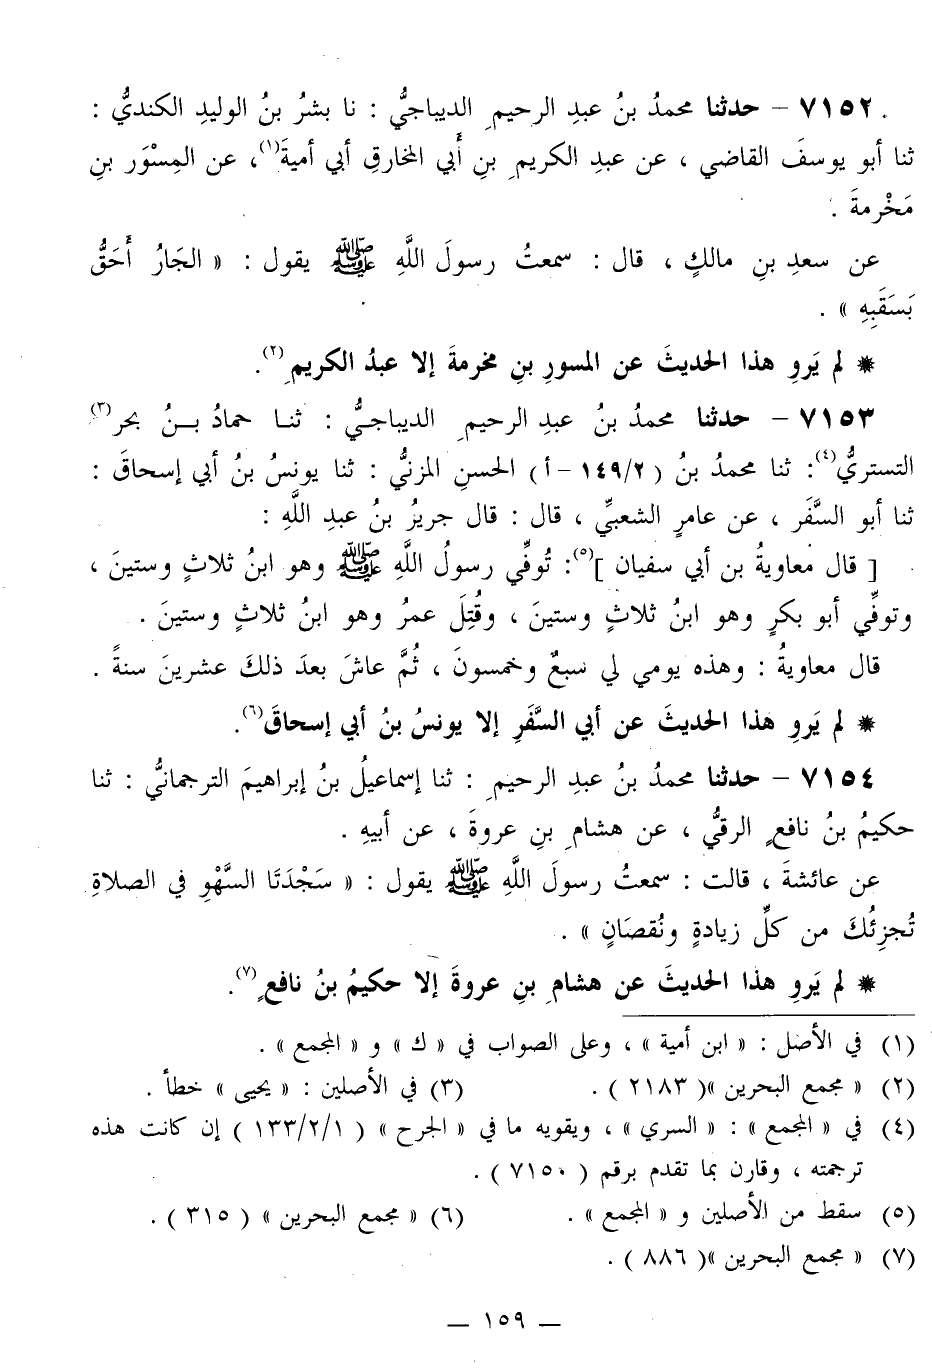 ٧١٥٢ - حدثنا محمدُ بنُ عبدِ الرحيمِ الديباجيُّ : نا بشرُ بنُ الوليدِ الكنديُّ :
ثنا أبو يوسفَ القاضي ، عن عبدِ الكريمِ بنِ أَبي المخارقِ أبي أميةَ(١)، عن المِسْوَر بنِ
مَخْرمةَ .
عن سعدِ بنِ مالكٍ ، قال : سمعتُ رسولَ اللَّهِ ﷺ يقول : « الجَارُ أَحَقُّ
بَسَقَبِهِ » .
* لم يَروِ هذا الحديثَ عن المسورِ بنِ مخرمةَ إلا عبدُ الكريمِ(٢).
٧١٥٣ - حدثنا محمدُ بنُ عبدِ الرحيمِ الديباجيُّ : ثنا حمادُ بنُ بحر(٣)
التستريُّ(٤): ثنا محمدُ بنُ ( ١٤٩/٢ - أ ) الحسنِ المزنيُّ : ثنا يونسُ بنُ أبي إسحاقَ :
ثنا أبو السَّفَر ، عن عامرٍ الشعبيِّ ، قال : قال جريرُ بنُ عبدِ اللَّهِ :
[ قال معاويةُ بن أبي سفيان ](٥): تُوفِّي رسولُ اللَّهِ ﷺ وهو ابنُ ثلاثٍ وستينَ ،
وتوفِّي أبو بكرٍ وهو ابنُ ثلاثٍ وستينَ ، وقُتِلَ عمرُ وهو ابنُ ثلاثٍ وستينَ .
قال معاويةُ : وهذه يومي لي سبعٌ وخمسونَ ، ثُمَّ عاشَ بعدَ ذلكَ عشرينَ سنةً .
* لم يَروِ هذا الحديثَ عن أبي السَّفَرِ إلا يونسُ بنُ أبي إسحاقَ(٦).
٧١٥٤ - حدثنا محمدُ بنُ عبدِ الرحيمِ : ثنا إسماعيلُ بنُ إبراهيمَ الترجمانيُّ : ثنا
حكيمُ بنُ نافعٍ الرقيُّ ، عن هشامِ بنِ عروةَ ، عن أبيهِ .
عن عائشةَ ، قالت : سمعتُ رسولَ اللَّهِ ﷺ يقول : « سَجْدَتَا السَّهْوِ في الصلاةِ
تُجزِئُكَ من كلِّ زيادةٍ ونُقصَانٍ » .
* لم يَروِ هذا الحديثَ عن هشامِ بنِ عروةَ إلا حكيمُ بنُ نافعٍ(٧).
(١) في الأصل : « ابن أمية » ، وعلى الصواب في « ك » و « المجمع » .
(٢) « مجمع البحرين »( ٢١٨٣ ) . (٣) في الأصلين : « يحيى » خطأ .
(٤) في « المجمع » : « السري » ، ويقويه ما في « الجرح » ( ١٣٣/٢/١ ) إن كانت هذه
ترجمته ، وقارن بما تقدم برقم ( ٧١٥٠ ) .
(٥) سقط من الأصلين و « المجمع » . (٦) « مجمع البحرين » ( ٣١٥ ) .
(٧) « مجمع البحرين »( ٨٨٦ ) .
— ١٥٩ —